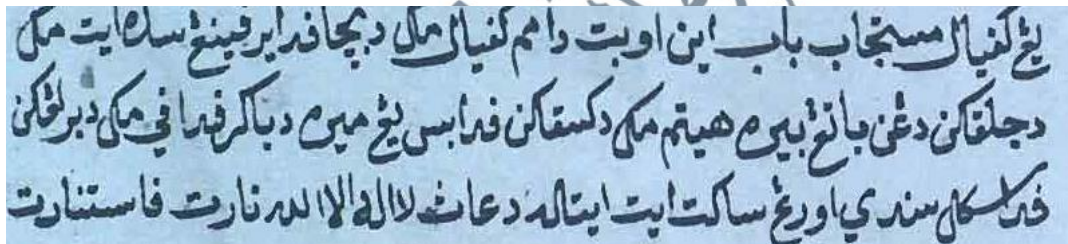 يڠ كفيال مستجاب باب اين اوبت دامم كفيال مك دبچا فد اير فينڠ ساله ايت مك
دجلقاكن دڠن باتڠ بيره هيتم مك دكسقاكن فد ابس يڠ ميره دباكر فد افي مك دبرلڠكن
فد سكل سندي اورڠ ساكت ايت ايتاله دعاث لااله الا الله نارت فاستنارت